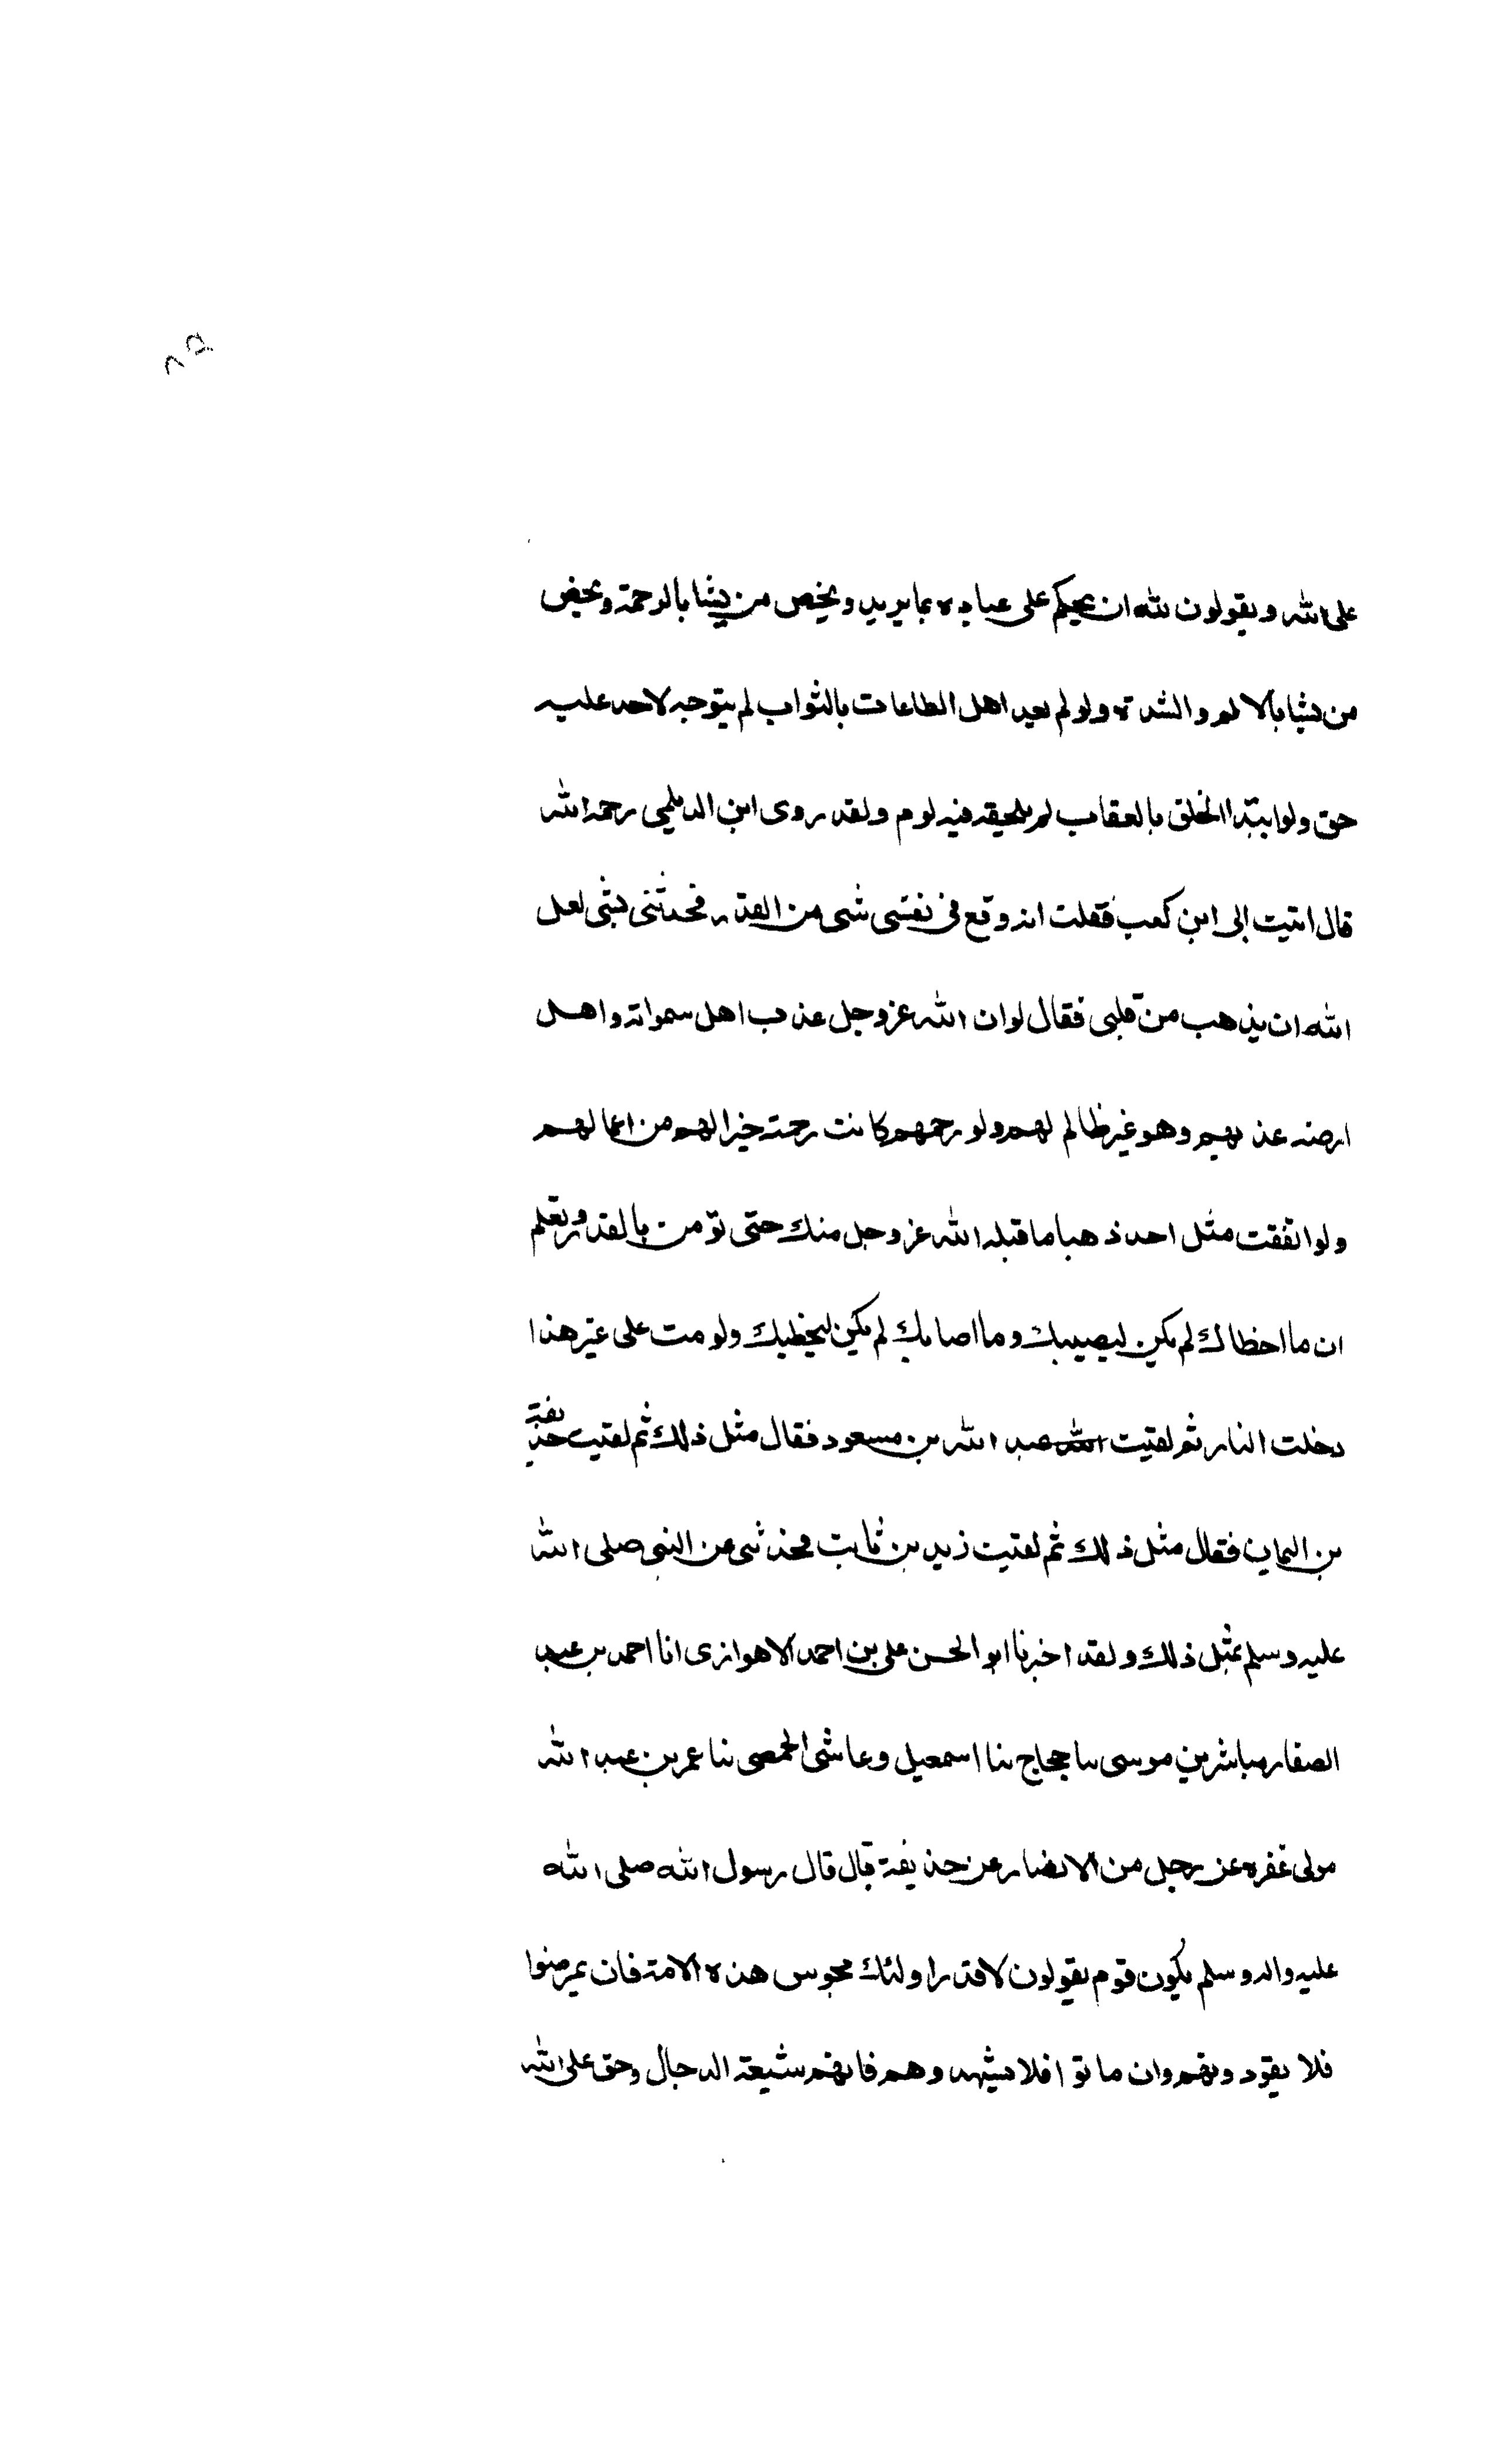 ٨٥
على الله ويقولون لله ان يحكم على عباده بما يريد ويخص من يشا بالرحمة ويخص
من يشا بالالم والشدة ولو لم يعد اهل الطاعات بالثواب لم يتوجه لاحد عليه
حق ولو ابتدا الخلق بالعقاب لم يلحقه فيه لوم ولقد روى ابن الديلمي رحمه الله
قال اتيت ابى ابن كعب فقلت انه وقع في نفسى شى من القدر فحدثنى بشى لعل
الله ان يذهب من قلبى فقال لو ان الله عز وجل عذب اهل سمواته واهل
ارضه عذبهم وهو غير ظالم لهم ولو رحمهم كانت رحمته خيرا لهم من اعمالهم
ولو انفقت مثل احد ذهبا ما قبله الله عز وجل منك حتى تومن بالقدر وتعلم
ان ما اخطاك لم يكن ليصيبك وما اصابك لم يكن ليخطيك ولو مت على غير هذا
دخلت النار ثم لقيت الله عبد الله بن مسعود فقال مثل ذلك ثم لقيت حذيفة
بن اليمان فقال مثل ذلك ثم لقيت زيد بن ثابت فحدثنى عن النبي صلى الله
عليه وسلم بمثل ذلك ولقد اخبرنا ابو الحسن على بن احمد الاهوازى انا احمد بن عبيد
الصفار مباشر بن موسى سا حجاج ننا اسمعيل وعاشى الحمصى ننا عمر بن عبد الله
مولى غفره عن رجل من الانصار عن حذيفة قال قال رسول الله صلى الله
عليه واله وسلم يكون قوم يقولون لا قدر اولئك مجوس هذه الامة فان يمرضوا
فلا يقودوهم وان ماتوا فلا يشهدوهم فانهم شيعة الدجال وحق على الله